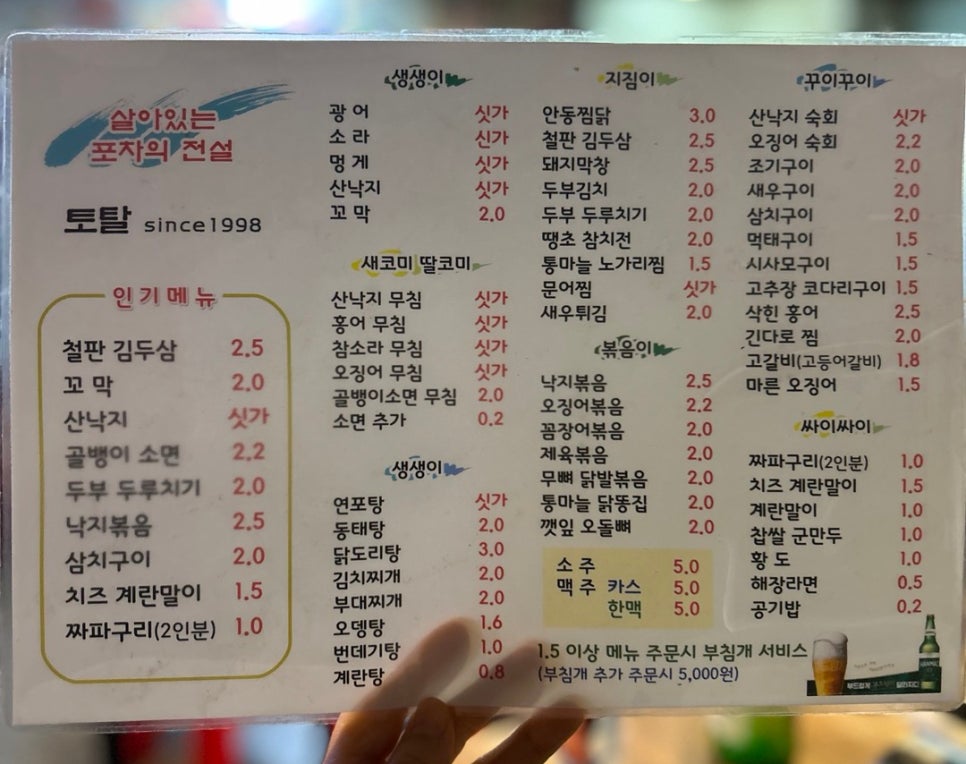 살아있는
포차의 전설
토탈 since1998
인기메뉴
철판 김두삼 2.5
꼬 막 2.0
산낙지 싯가
골뱅이 소면 2.2
두부 두루치기 2.0
낙지볶음 2.5
삼치구이 2.0
치즈 계란말이 1.5
짜파구리(2인분) 1.0
생생이
광 어 싯가
소 라 싯가
멍 게 싯가
산낙지 싯가
꼬 막 2.0
새코미 딸코미
산낙지 무침 싯가
홍어 무침 싯가
참소라 무침 싯가
오징어 무침 싯가
골뱅이소면 무침 2.0
소면 추가 0.2
생생이
연포탕 싯가
동태탕 2.0
닭도리탕 3.0
김치찌개 2.0
부대찌개 2.0
오뎅탕 1.6
번데기탕 1.0
계란탕 0.8
지짐이
안동찜닭 3.0
철판 김두삼 2.5
돼지막창 2.5
두부김치 2.0
두부 두루치기 2.0
땡초 참치전 2.0
통마늘 노가리찜 1.5
문어찜 싯가
새우튀김 2.0
볶음이
낙지볶음 2.5
오징어볶음 2.2
꼼장어볶음 2.0
제육볶음 2.0
무뼈 닭발볶음 2.0
통마늘 닭똥집 2.0
깻잎 오돌뼈 2.0
소 주 5.0
맥 주 카스 5.0
한맥 5.0
꾸이꾸이
산낙지 숙회 싯가
오징어 숙회 2.2
조기구이 2.0
새우구이 2.0
삼치구이 2.0
먹태구이 1.5
시사모구이 1.5
고추장 코다리구이 1.5
삭힌 홍어 2.5
긴다로 찜 2.0
고갈비(고등어갈비) 1.8
마른 오징어 1.5
싸이싸이
짜파구리(2인분) 1.0
치즈 계란말이 1.5
계란말이 1.0
찹쌀 군만두 1.0
황 도 1.0
해장라면 0.5
공기밥 0.2
1.5 이상 메뉴 주문시 부침개 서비스
(부침개 추가 주문시 5,000원)